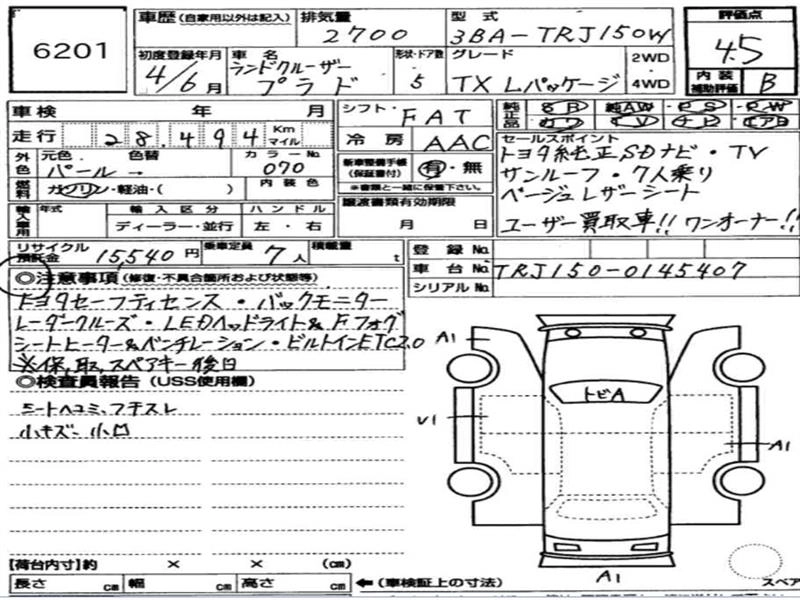 6201
車歴 (自家用以外は記入) 排気量 2700 型式 3BA-TRJ150W 評価点 4.5
初度登録年月 4/6月 車名 ランドクルーザー プラド 形状・ドア数 5 グレード TX Lパッケージ 2WD 4WD 内装補助評価 B
車検 年 月 シフト FAT 純正品 SR 純AW PS PW
走行 28,494 Km マイル 冷房 AAC カワ TV ナビ エアB
外色 元色 パール 色替 → カラーNo 070
燃料 ガソリン・軽油・( ) 内装色
新車整備手帳 (保証書付) 有・無
※書類と一緒に保管下さい。
セールスポイント
トヨタ純正SDナビ・TV
サンルーフ・7人乗り
ベージュレザーシート
ユーザー買取車!! ワンオーナー!!
輸入車用 年式 輸入区分 ハンドル 譲渡書類有効期限
ディーラー・並行 左・右 月 日
リサイクル預託金 15,540円 乗車定員 7人 積載量 t
登録No.
車台No. TRJ150-0145407
シリアルNo.
◎注意事項 (修復・不具合箇所および状態等)
トヨタセーフティセンス・バックモニター
レーダークルーズ・LEDヘッドライト&Fフォグ
シートヒーター&ベンチレーション・ビルトインETC2.0
※保,取,スペアキー後日
◎検査員報告 (USS使用欄)
シートヘコミ、フチスレ
小キズ、小凹
A1
トビA
U1
A1
A1
【荷台内寸】約 × × (cm)
長さ cm 幅 cm 高さ cm ←(車検証上の寸法)
スペア